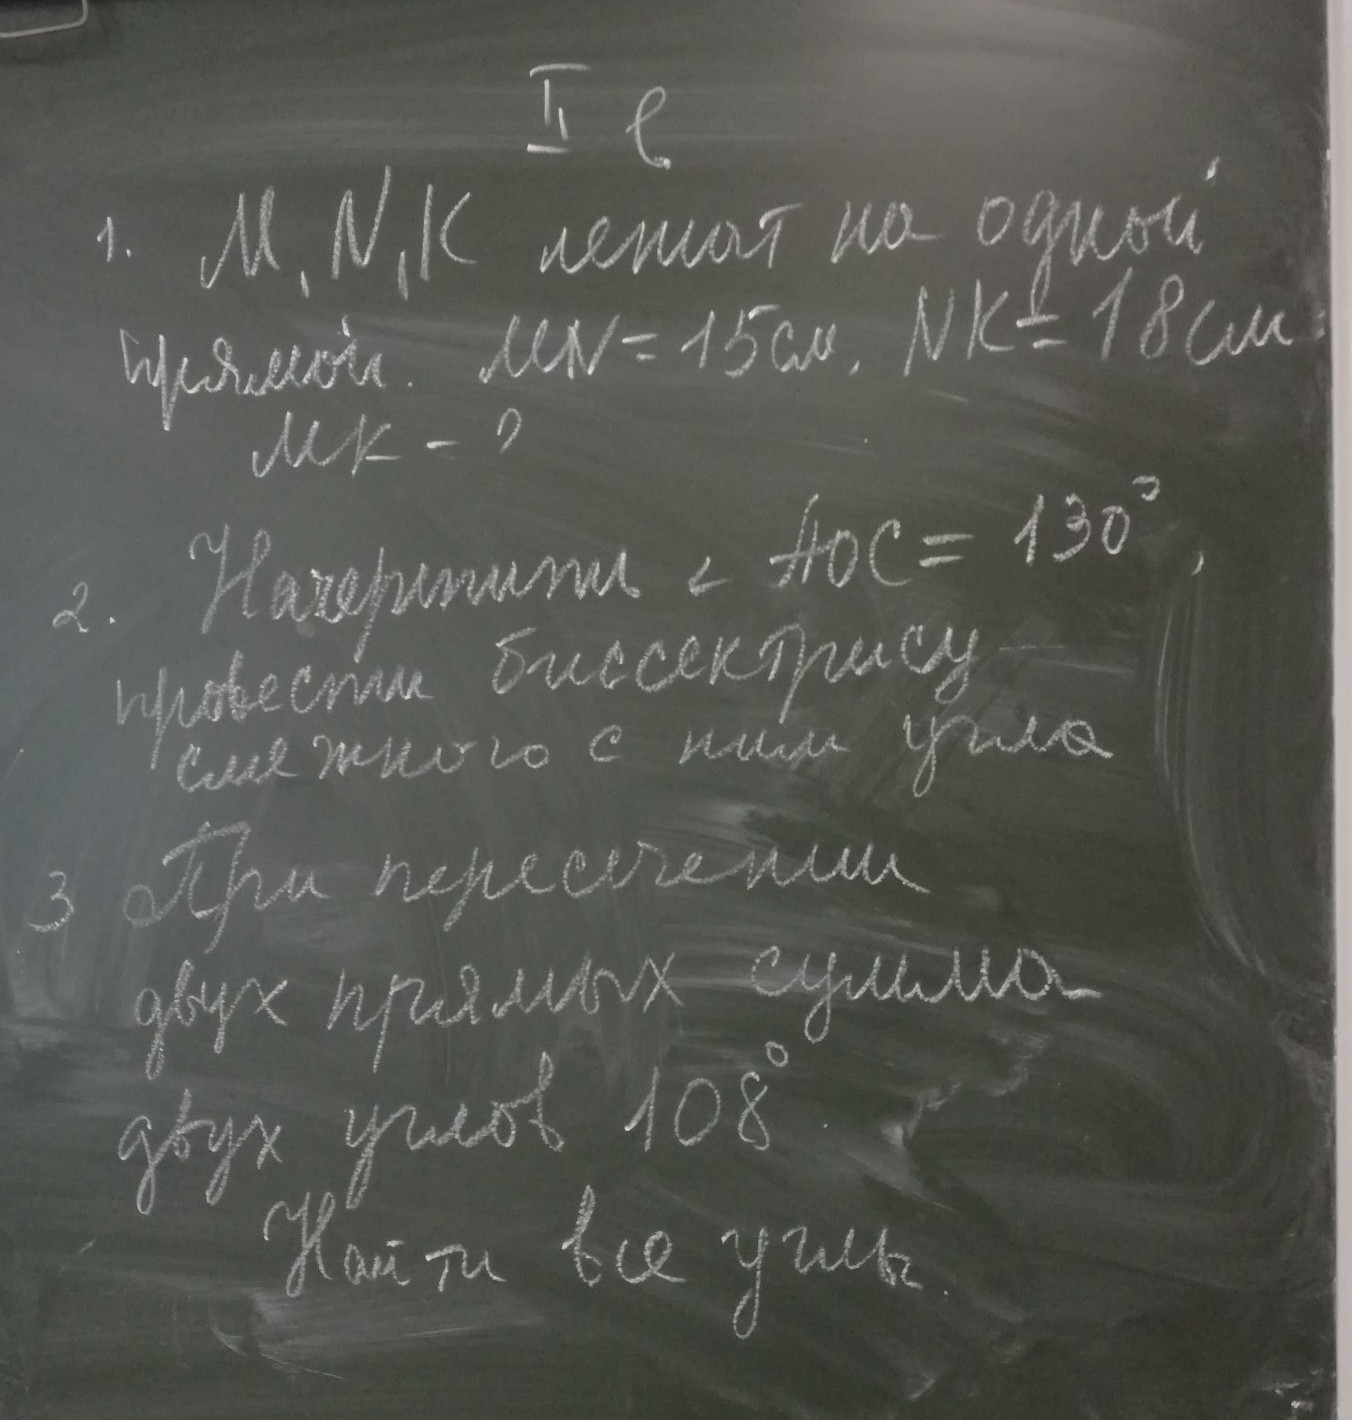 II в
1. M, N, K лежат на одной
прямой. MN = 15 см, NK = 18 см
MK - ?
2. Начертить ∠ AOC = 130°,
провести биссектрису
смежного с ним угла
3 При пересечении
двух прямых сумма
двух углов 108°
Найти все углы